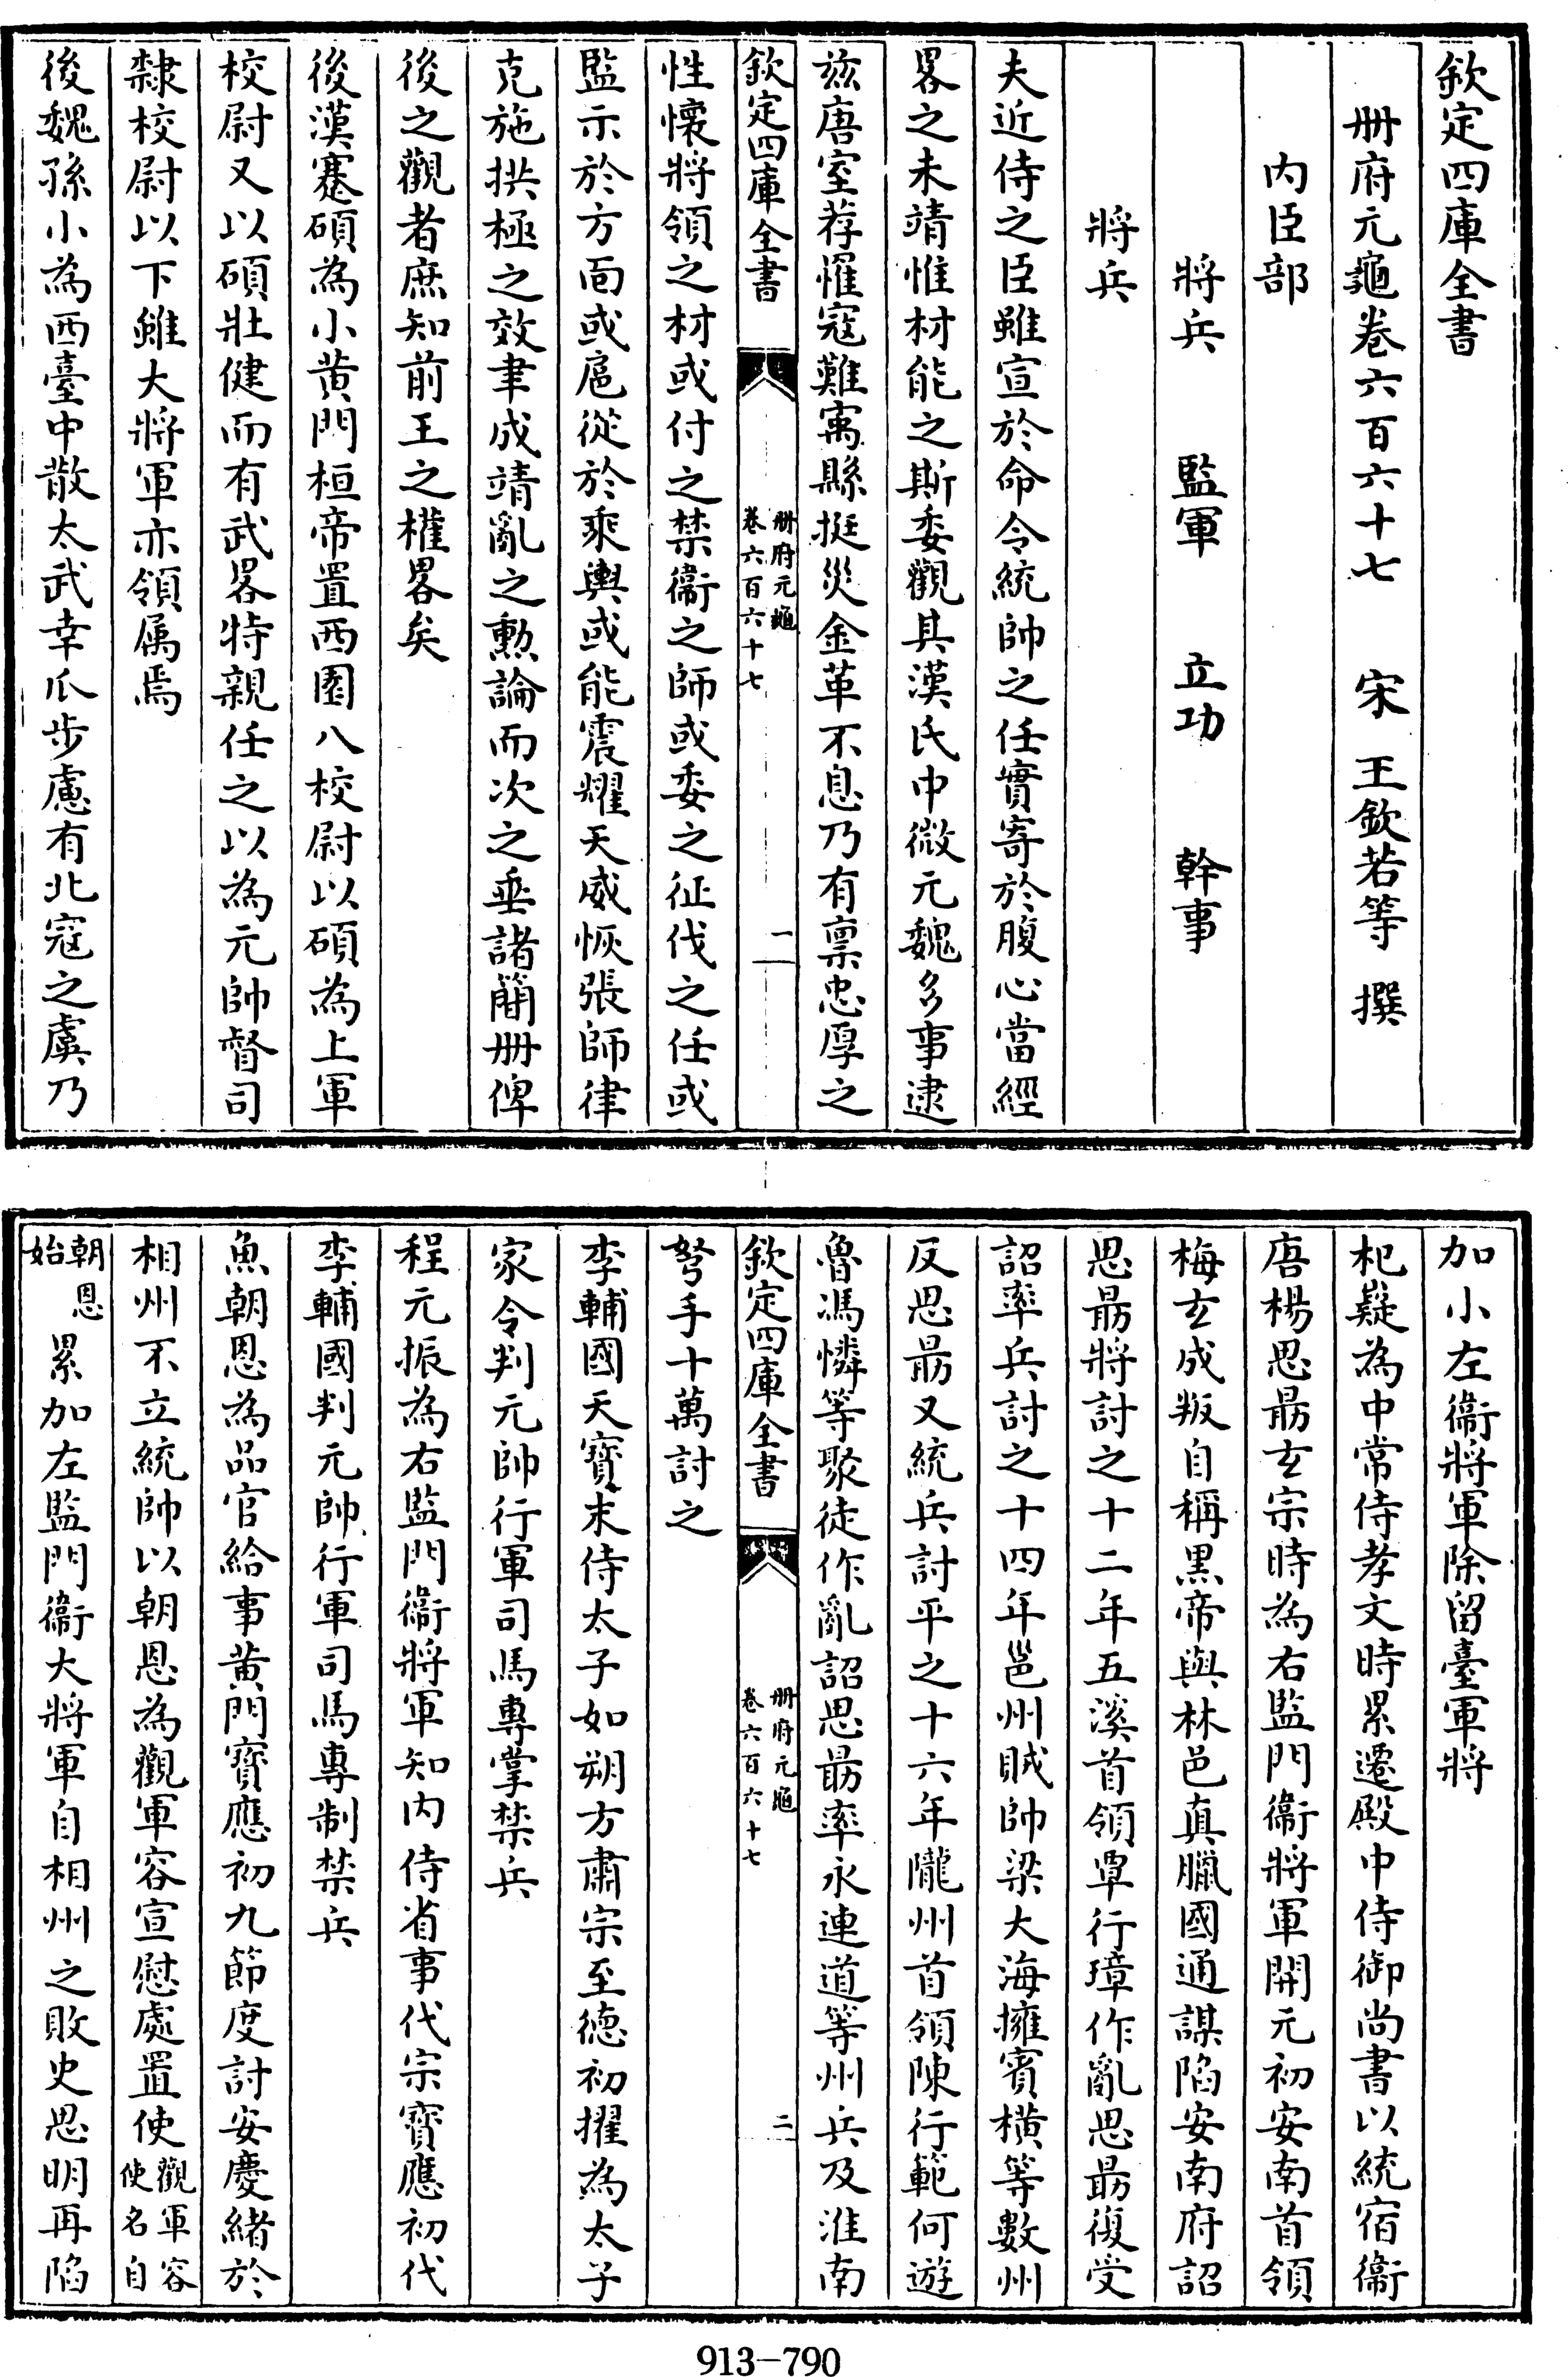 欽定四庫全書
册府元龜卷六百六十七　宋　王欽若等　撰
内臣部
將兵　監軍　立功　幹事
將兵
夫近侍之臣雖宣於命令統帥之任實寄於腹心當經
畧之未靖惟材能之斯委觀其漢氏中微元魏多事逮
兹唐室荐罹寇難寓縣挺災金革不息乃有禀忠厚之
欽定四庫全書
册府元龜
卷六百六十七
一
性懷將領之材或付之禁衞之師或委之征伐之任或
監示於方面或扈從於乘輿或能震耀天威恢張師律
克施拱極之效聿成靖亂之勲論而次之垂諸簡册俾
後之觀者庶知前王之權畧矣
後漢蹇碩為小黄門桓帝置西園八校尉以碩為上軍
校尉又以碩壯健而有武畧特親任之以為元帥督司
隸校尉以下雖大將軍亦領属焉
後魏孫小為西臺中散太武幸瓜步慮有北寇之虞乃
加小左衞將軍除留臺軍將
杞嶷為中常侍孝文時累遷殿中侍御尚書以統宿衞
唐楊思勗玄宗時為右監門衞將軍開元初安南首領
梅玄成叛自稱黒帝與林邑真臘國通謀陷安南府詔
思勗將討之十二年五溪首領覃行璋作亂思勗復受
詔率兵討之十四年邕州賊帥梁大海擁賓横等數州
反思勗又統兵討平之十六年隴州首領陳行範何遊
魯馮憐等聚徒作亂詔思勗率永連道等州兵及淮南
欽定四庫全書
册府元龜
卷六百六十七
二
弩手十萬討之
李輔國天寳末侍太子如朔方肅宗至徳初擢為太子
家令判元帥行軍司馬專掌禁兵
程元振為右監門衞將軍知内侍省事代宗寳應初代
李輔國判元帥行軍司馬專制禁兵
魚朝恩為品官給事黄門寳應初九節度討安慶緒於
相州不立統帥以朝恩為觀軍容宣慰處置使觀軍容使名自
朝恩始累加左監門衞大將軍自相州之敗史思明再陷
913-790